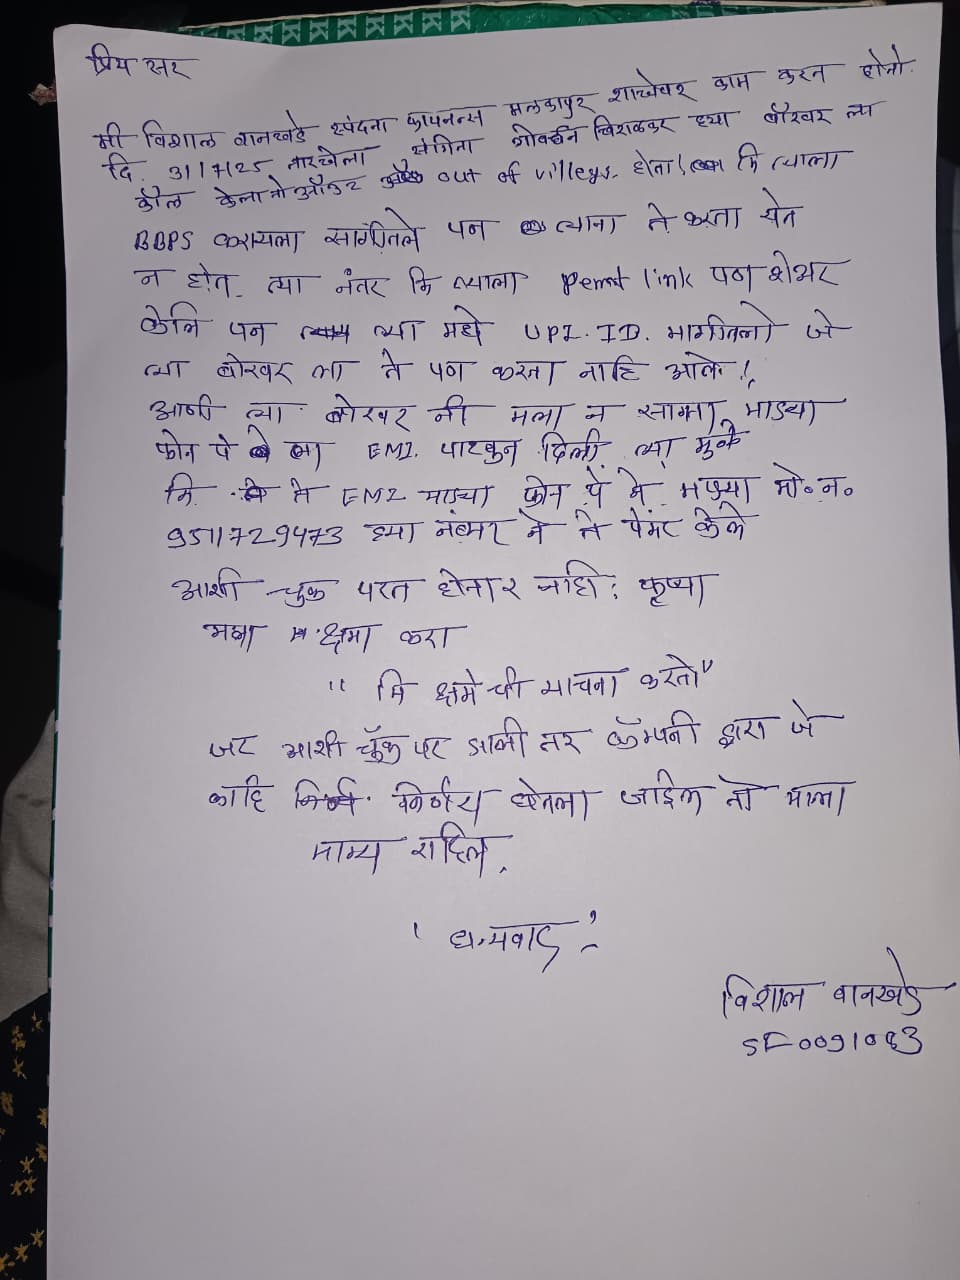 प्रिय सर
मी विशाल वानखडे स्पंदना फायनन्स मलकापुर शाखेवर काम करत होतो.
दि. 31/7/25 तारखेला संगिता गोवर्धन ह्या बॉरवर ला
कॉल केला तो ऑऊट out of villeys. होता! मि त्याला
BBPS करायला सांगीतले पन त्याना ते करता येत
न होत. त्या नंतर मि त्याला Pemnt link पण शेअर
केलि पन त्या मधे UPI. ID. मागीतलो जे
त्या बोरवर ला ते पण करता नाहि आले!
आणी त्या बोरवर नी मला न सांगता माझ्या
फोन पे ला EMI. पाटवुन दिली त्या मुळे
मि ते EMI माझ्या फोन पे ने मझ्या मो. न.
9511729473 ह्या नंबर ने ते पेमेंट केले
आशी चुक परत होनार नाही: कृप्या
मला क्षमा करा
" मि क्षमे ची याचना करतो"
जर आशी चूक परत झाली तर कॅम्पनी द्वारा जे
काहि निर्णय घेतला जाईल तो माला
मान्य राहिल.
' धन्यवाद '
विशाल वानखडे
SF0091083